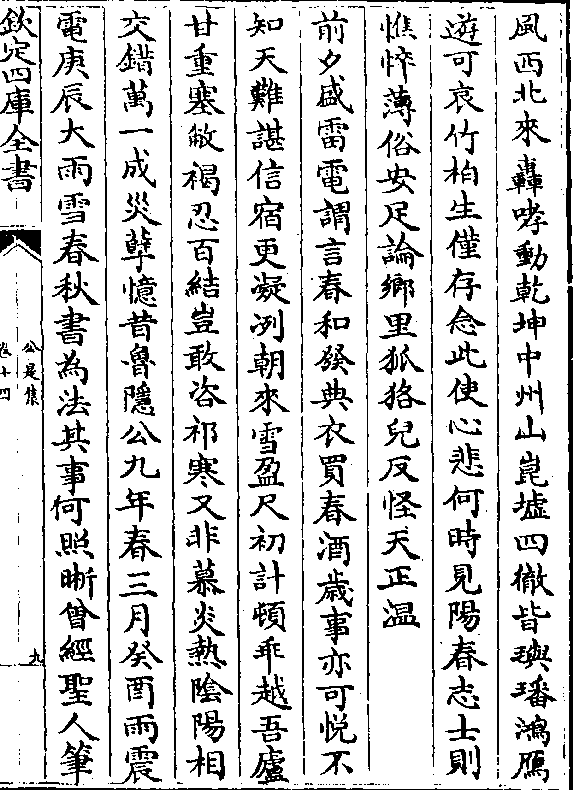 風西北來轟哮動乾坤中州山崑墟四徹皆璵璠鴻鴈
遊可哀竹柏生僅存念此使心悲何時見陽春志士則
憔悴薄俗安足論鄉里狐狢兒反怪天正温
前夕盛雷電謂言春和發典衣買春酒歲事亦可悅不
知天難諶信宿更凝冽朝來雪盈尺初計頓乖越吾廬
甘重塞敝褐忍百結豈敢咨祁寒又非慕炎熱陰陽相
交錯萬一成災孽憶昔魯隱公九年春三月癸酉雨震
電庚辰大雨雪春秋書為法其事何照晣曾經聖人筆
欽定四庫全書
公是集
卷十四
九